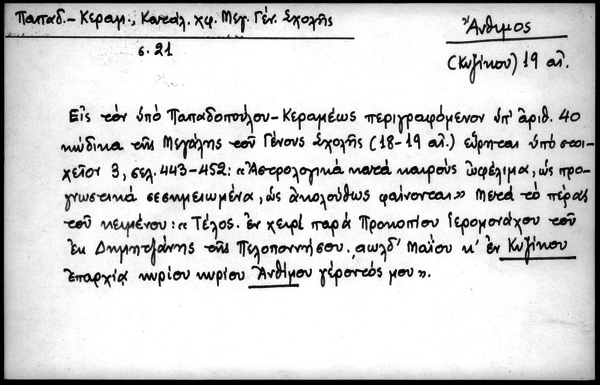 Παπαδ.-Κεραμ., Κατάλ. χφ. Μεγ. Γέν. Σχολῆς
σ. 21
Ἄνθιμος
(Κυζίκου) 19 αἰ.
Εἰς τὸν ὑπὸ Παπαδοπούλου-Κεραμέως περιγραφόμενον ὑπ' ἀριθ. 40
κώδικα τῆς Μεγάλης τοῦ Γένους Σχολῆς (18-19 αἰ.) εὕρηται ὑπὸ στοι-
χεῖον 3, σελ. 443-452: «Ἀστρολογικὰ κατὰ καιροὺς ὠφέλιμα, ὡς προ-
γνωστικὰ σεσημειωμένα, ὡς ἀκολούθως φαίνονται» Μετὰ τὸ πέρας
τοῦ κειμένου: «Τέλος. ἐν χειρὶ παρὰ Προκοπίου Ἱερομονάχου τοῦ
ἐκ Δημητζάνης τῆς Πελοποννήσου, αωλδ' Μαΐου κ' ἐν Κυζίκου
ἐπαρχίᾳ κυρίου κυρίου Ἀνθίμου γέροντός μου».